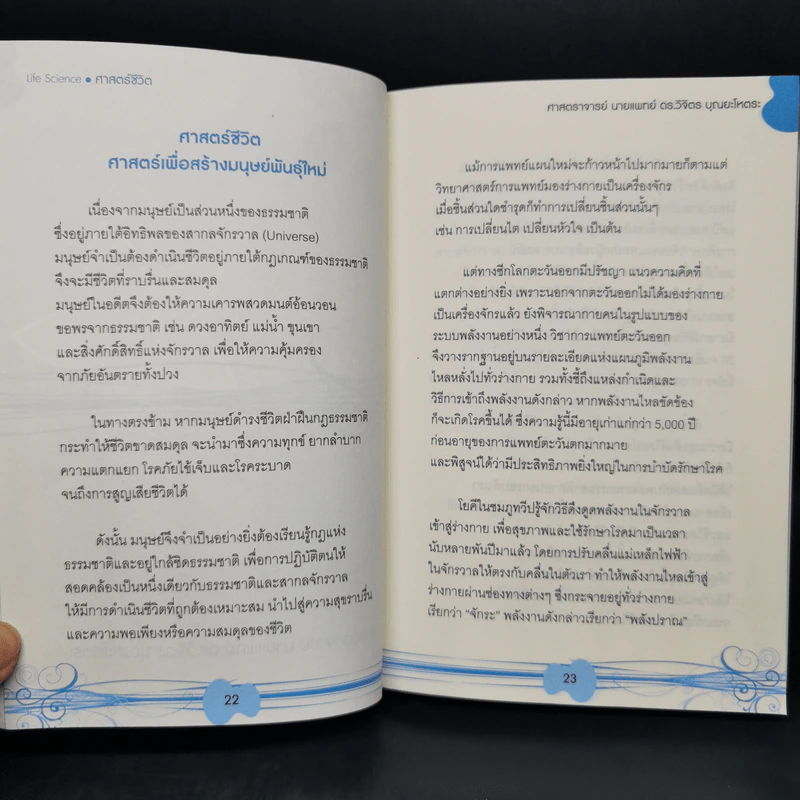 Life Science • ศาสตร์ชีวิต
ศาสตร์ชีวิต
ศาสตร์เพื่อสร้างมนุษย์พันธุ์ใหม่
เนื่องจากมนุษย์เป็นส่วนหนึ่งของธรรมชาติ
ซึ่งอยู่ภายใต้อิทธิพลของสากลจักรวาล (Universe)
มนุษย์จำเป็นต้องดำเนินชีวิตอยู่ภายใต้กฎเกณฑ์ของธรรมชาติ
จึงจะมีชีวิตที่ราบรื่นและสมดุล
มนุษย์ในอดีตจึงต้องให้ความเคารพสวดมนต์อ้อนวอน
ขอพรจากธรรมชาติ เช่น ดวงอาทิตย์ แม่น้ำ ขุนเขา
และสิ่งศักดิ์สิทธิ์แห่งจักรวาล เพื่อให้ความคุ้มครอง
จากภัยอันตรายทั้งปวง
ในทางตรงข้าม หากมนุษย์ดำรงชีวิตฝ่าฝืนกฎธรรมชาติ
กระทำให้ชีวิตขาดสมดุล จะนำมาซึ่งความทุกข์ ยากลำบาก
ความแตกแยก โรคภัยไข้เจ็บและโรคระบาด
จนถึงการสูญเสียชีวิตได้
ดังนั้น มนุษย์จึงจำเป็นอย่างยิ่งต้องเรียนรู้กฎแห่ง
ธรรมชาติและอยู่ใกล้ชิดธรรมชาติ เพื่อการปฏิบัติตนให้
สอดคล้องเป็นหนึ่งเดียวกับธรรมชาติและสากลจักรวาล
ให้มีการดำเนินชีวิตที่ถูกต้องเหมาะสม นำไปสู่ความสุขราบรื่น
และความพอเพียงหรือความสมดุลของชีวิต
22
ศาสตราจารย์ นายแพทย์ ดร.วิจิตร บุณยะโหตระ
แม้การแพทย์แผนใหม่จะก้าวหน้าไปมากมายก็ตามแต่
วิทยาศาสตร์การแพทย์มองร่างกายเป็นเครื่องจักร
เมื่อชิ้นส่วนใดชำรุดก็ทำการเปลี่ยนชิ้นส่วนนั้นๆ
เช่น การเปลี่ยนไต เปลี่ยนหัวใจ เป็นต้น
แต่ทางซีกโลกตะวันออกมีปรัชญา แนวความคิดที่
แตกต่างอย่างยิ่ง เพราะนอกจากตะวันออกไม่ได้มองร่างกาย
เป็นเครื่องจักรแล้ว ยังพิจารณากายคนในรูปแบบของ
ระบบพลังงานอย่างหนึ่ง วิชาการแพทย์ตะวันออก
จึงวางรากฐานอยู่บนรายละเอียดแห่งแผนภูมิพลังงาน
ไหลหลั่งไปทั่วร่างกาย รวมทั้งชี้ถึงแหล่งกำเนิดและ
วิธีการเข้าถึงพลังงานดังกล่าว หากพลังงานไหลขัดข้อง
ก็จะเกิดโรคขึ้นได้ ซึ่งความรู้นี้มีอายุเก่าแก่กว่า 5,000 ปี
ก่อนอายุของการแพทย์ตะวันตกมากมาย
และพิสูจน์ได้ว่ามีประสิทธิภาพยิ่งใหญ่ในการบำบัดรักษาโรค
โยคีในชมภูทวีปรู้จักวิธีดึงดูดพลังงานในจักรวาล
เข้าสู่ร่างกาย เพื่อสุขภาพและใช้รักษาโรคมาเป็นเวลา
นับหลายพันปีมาแล้ว โดยการปรับคลื่นแม่เหล็กไฟฟ้า
ในจักรวาลให้ตรงกับคลื่นในตัวเรา ทำให้พลังงานไหลเข้าสู่
ร่างกายผ่านช่องทางต่างๆ ซึ่งกระจายอยู่ทั่วร่างกาย
เรียกว่า “จักระ” พลังงานดังกล่าวเรียกว่า “พลังปราณ”
23